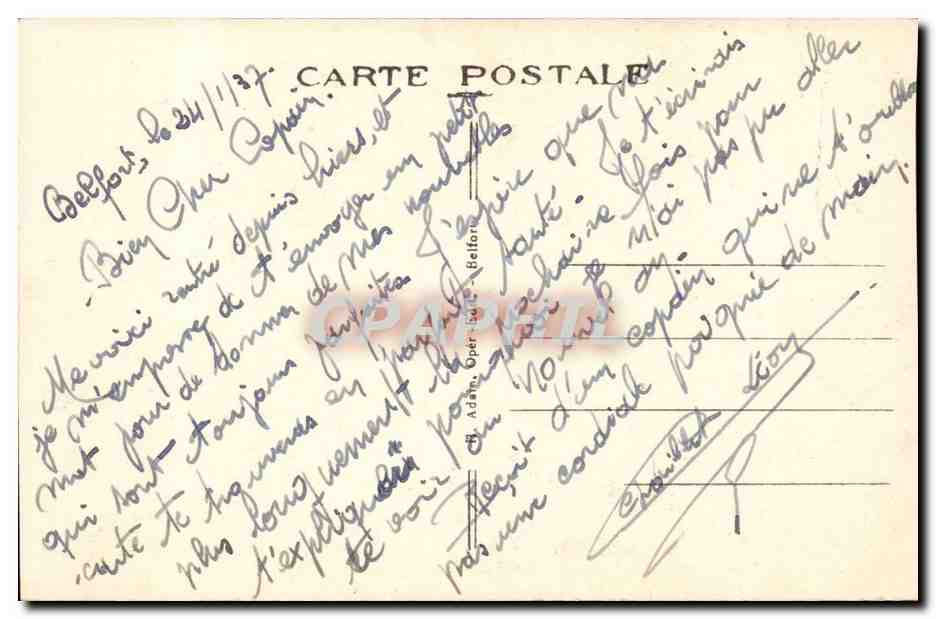 CARTE POSTALE
Belfort, le 24/1/37.
Bien Cher Copain.
Me voici rentré depuis hiers, et
je m'empresse de t'envoyer un petit
mot pour te donner de mes nouvelles
qui sont toujours parfaites j'espère que ma
carte te trouveras en parfaite santé. Je t'écrirais
plus longuement la prochaine fois pour
t'expliquer pourquoi je n'ai pas pu aller
te voir au Nouvel an.
Reçoit d'un copain qui ne t'oublie
pas une cordiale poignée de main.
Léon
R. Adam, Oper - Belfort
CPAPHIL